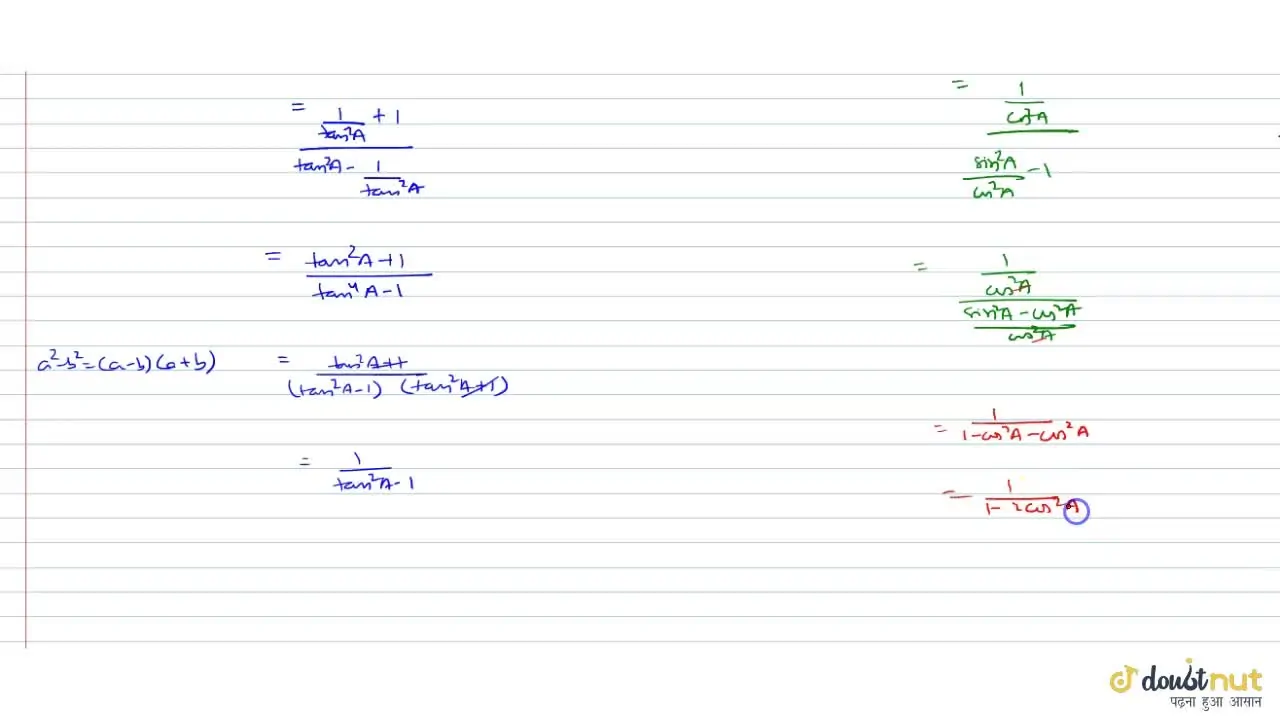 = (1/tan²A + 1)/(tan²A - 1/tan²A)
= (tan²A + 1)/(tan⁴A - 1)
a²-b²=(a-b)(a+b)
= (tan²A+1)/((tan²A-1) (tan²A+1))
= 1/(tan²A - 1)
= (1/cos²A)/(sin²A/cos²A - 1)
= (1/cos²A)/((sin²A - cos²A)/cos²A)
= 1/(1-cos²A - cos²A)
= 1/(1- 2cos²A)
doubtnut
पढ़ना हुआ आसान